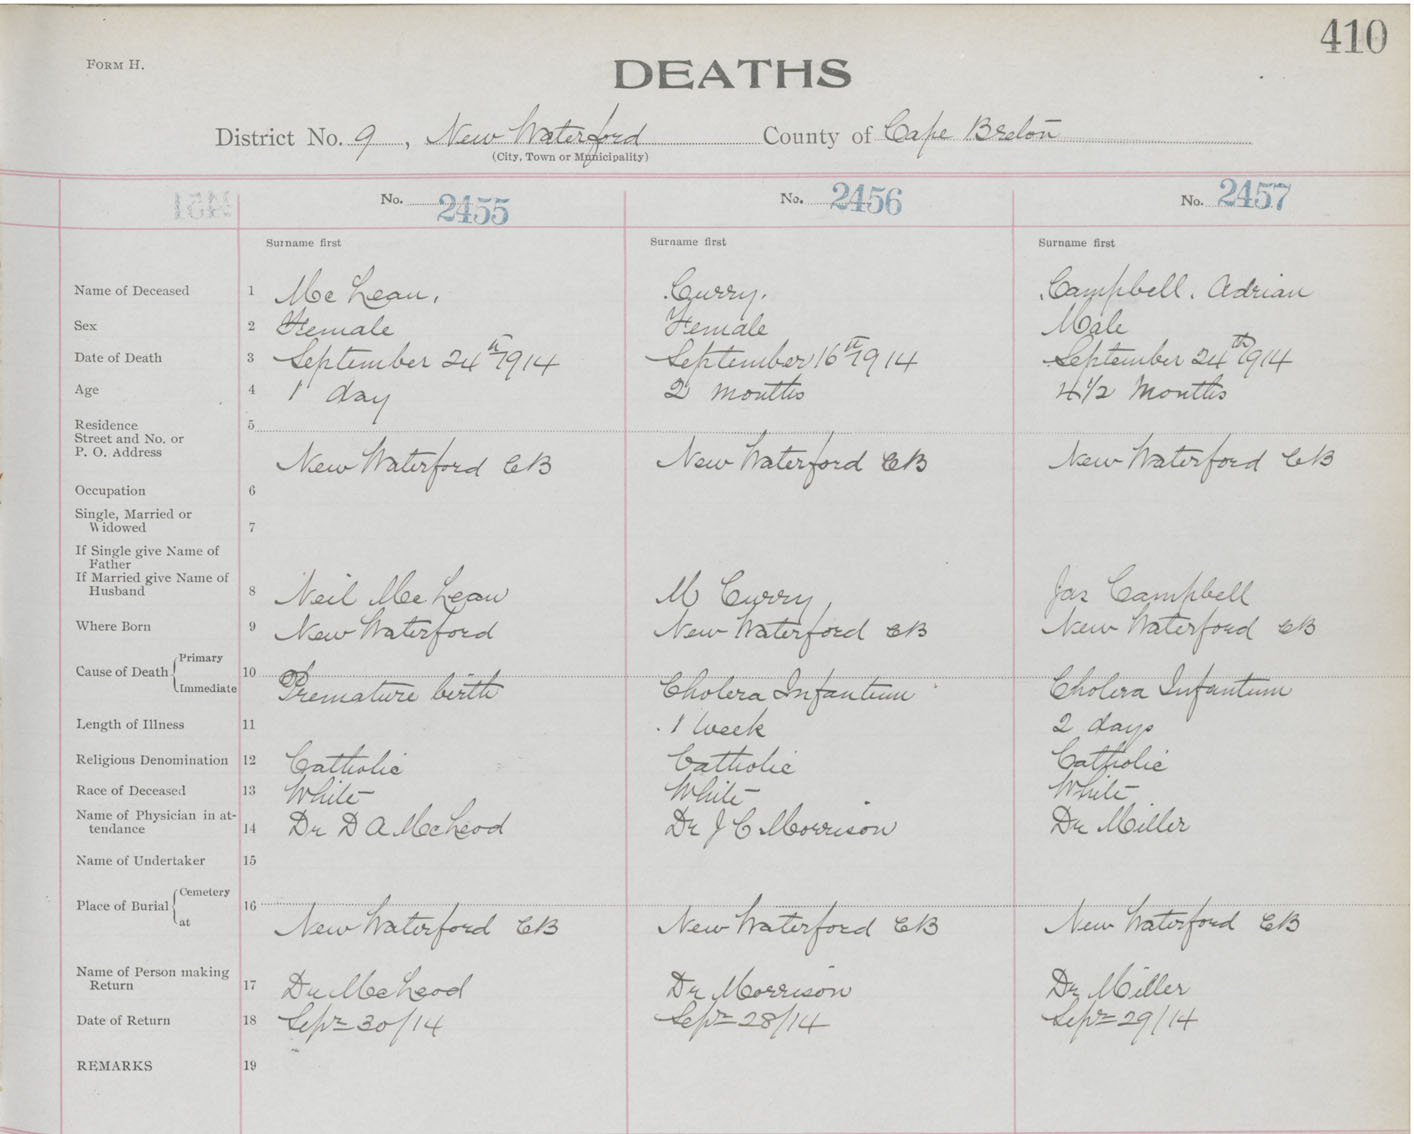 410
FORM H.
DEATHS
District No. 9, New Waterford County of Cape Breton
(City, Town or Municipality)
No. 2455 No. 2456 No. 2457
Surname first Surname first Surname first
Name of Deceased 1 McLean. Curry. Campbell. Adrian
Sex 2 Female Female Male
Date of Death 3 September 24th 1914 September 16th 1914 September 24th 1914
Age 4 1 day 2 months 4 1/2 Months
Residence 5
Street and No. or
P. O. Address
New Waterford CB New Waterford CB New Waterford CB
Occupation 6
Single, Married or
Widowed 7
If Single give Name of
Father
If Married give Name of
Husband 8 Neil McLean M Curry, Jas Campbell
Where Born 9 New Waterford New Waterford CB New Waterford CB
Cause of Death Primary 10
Immediate Premature birth Cholera Infantum Cholera Infantum
Length of Illness 11 1 week 2 days
Religious Denomination 12 Catholic Catholic Catholic
Race of Deceased 13 White White White
Name of Physician in at-
tendance 14 Dr D A McLeod Dr J C Morrison Dr Miller
Name of Undertaker 15
Place of Burial Cemetery 16
at New Waterford CB New Waterford CB New Waterford CB
Name of Person making
Return 17 Dr McLeod Dr Morrison Dr Miller
Date of Return 18 Sepr 30/14 Sepr 28/14 Sepr 29/14
REMARKS 19